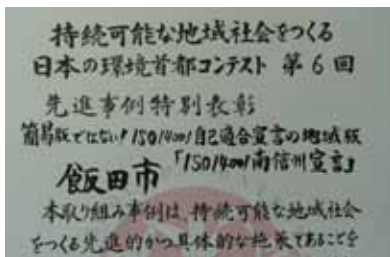 持続可能な地域社会をつくる
日本の環境首都コンテスト 第6回
先進事例特別表彰
簡易版ではない!ISO14001自己適合宣言の地域版
「ISO14001南信州宣言」
飯田市
本取り組み事例は、持続可能な地域社会
をつくる先進的かつ具体的な施策であることを